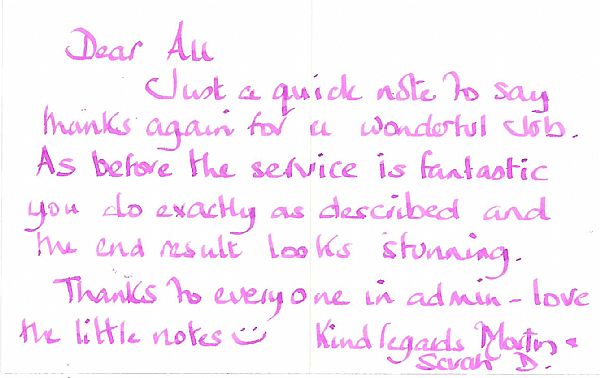 Dear All
Just a quick note to say
thanks again for a wonderful job.
As before the service is fantastic
you do exactly as described and
the end result looks stunning.
Thanks to everyone in admin - love
the little notes :) Kind regards Martin &
Sarah D.